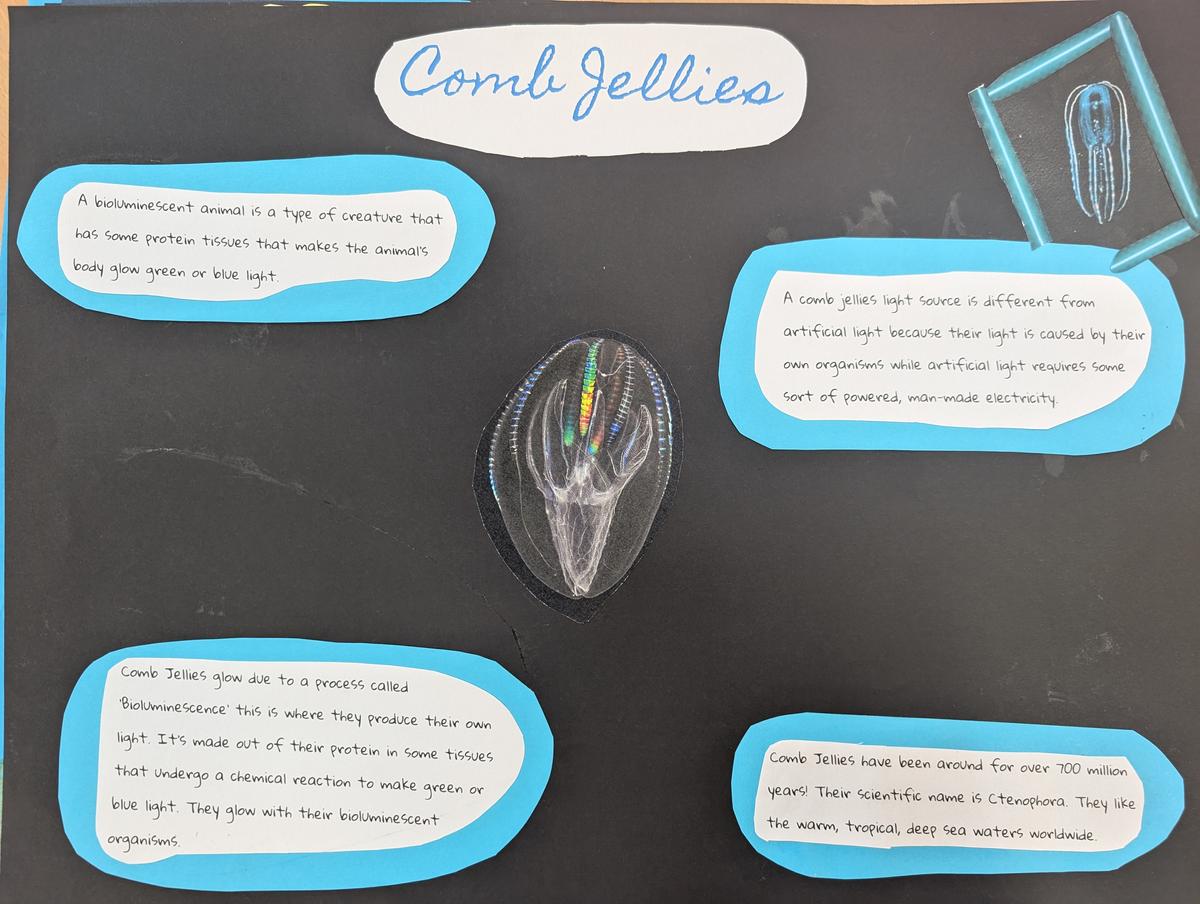 Comb Jellies
A bioluminescent animal is a type of creature that
has some protein tissues that makes the animal's
body glow green or blue light.
A comb jellies light source is different from
artificial light because their light is caused by their
own organisms while artificial light requires some
sort of powered, man-made electricity.
Comb Jellies glow due to a process called
'Bioluminescence' this is where they produce their own
light. It's made out of their protein in some tissues
that undergo a chemical reaction to make green or
blue light. They glow with their bioluminescent
organisms.
Comb Jellies have been around for over 700 million
years! Their scientific name is Ctenophora. They like
the warm, tropical, deep sea waters worldwide.